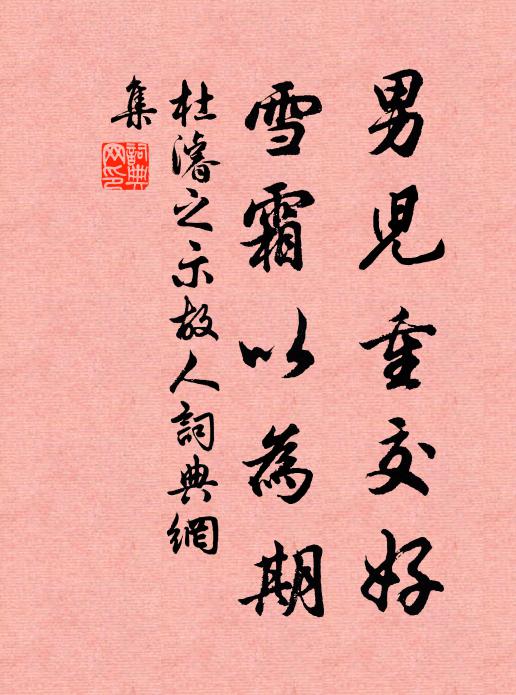 男兒重交好
雪霜以為期
杜濬之示故人詞典網
集
詞典
网印